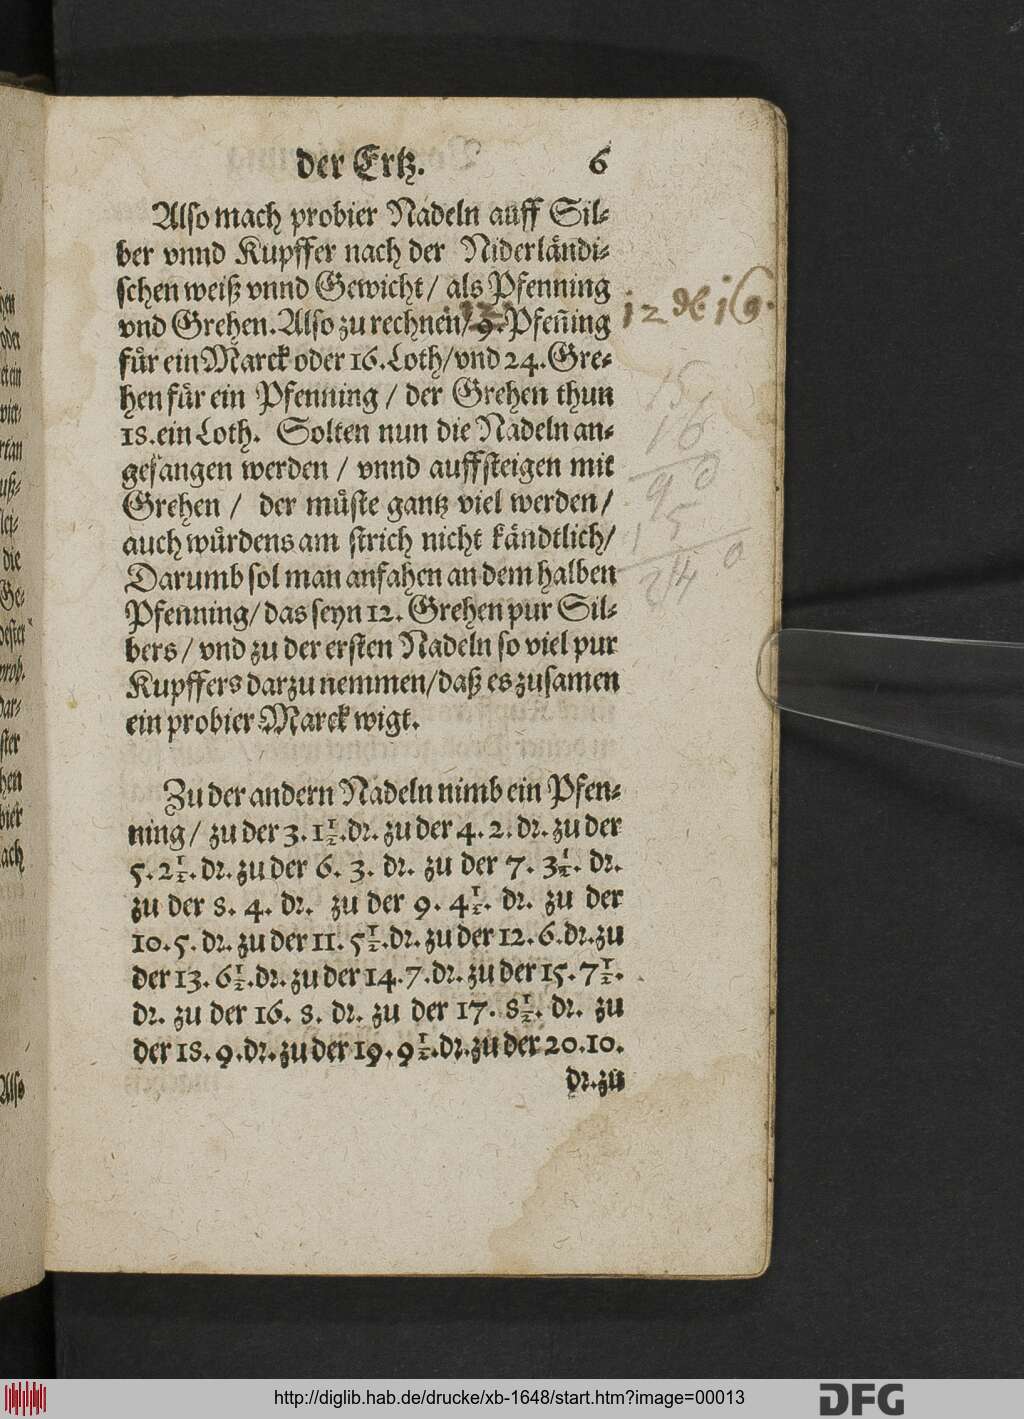 der Ertz. 6
Also mach probier Nadeln auff Sil-
ber vnnd Kupffer nach der Niderländi-
schen weiß vnnd Gewicht / als Pfenning
vnd Grehen. Also zu rechnen / 9. Pfen̄ing
fůr ein Marck oder 16. Loth / vnd 24. Gre-
hen fůr ein Pfenning / der Grehen thun
18. ein Loth. Solten nun die Nadeln an-
gefangen werden / vnnd auffsteigen mit
Grehen / der můste gantz viel werden /
auch wůrdens am strich nicht kändtlich /
Darumb sol man anfahen an dem halben
Pfenning / das seyn 12. Grehen pur Sil-
bers / vnd zu der ersten Nadeln so viel pur
Kupffers darzu nemmen / daß es zusamen
ein probier Marck wigt.
Zu der andern Nadeln nimb ein Pfen-
ning / zu der 3. 1½. dr. zu der 4. 2. dr. zu der
5. 2½. dr. zu der 6. 3. dr. zu der 7. 3½. dr.
zu der 8. 4. dr. zu der 9. 4½. dr. zu der
10. 5. dr. zu der 11. 5½. dr. zu der 12. 6. dr. zu
der 13. 6½. dr. zu der 14. 7. dr. zu der 15. 7½.
dr. zu der 16. 8. dr. zu der 17. 8½. dr. zu
der 18. 9. dr. zu der 19. 9½. dr. zu der 20. 10.
dr. zu
15
16
9 0
1 5
2 4 0
http://diglib.hab.de/drucke/xb-1648/start.htm?image=00013
DFG